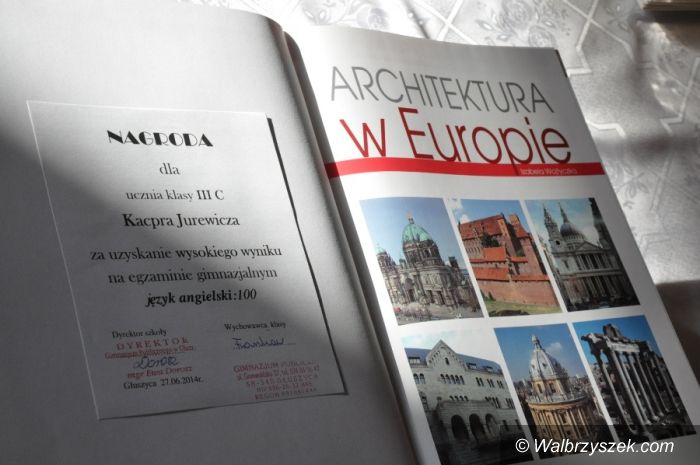 NAGRODA
dla
ucznia klasy III C
Kacpra Jurewicza
za uzyskanie wysokiego wyniku
na egzaminie gimnazjalnym
język angielski:100
Dyrektor szkoły
Wychowawca klasy
DYREKTOR
mgr Ewa Dorosz
Głuszyca 27.06.2014r.
GIMNAZJUM PUBLICZNE
58-340 GŁUSZYCA
ARCHITEKTURA
w Europie
Izabela Wojtyczka
© Walbrzyszek.com